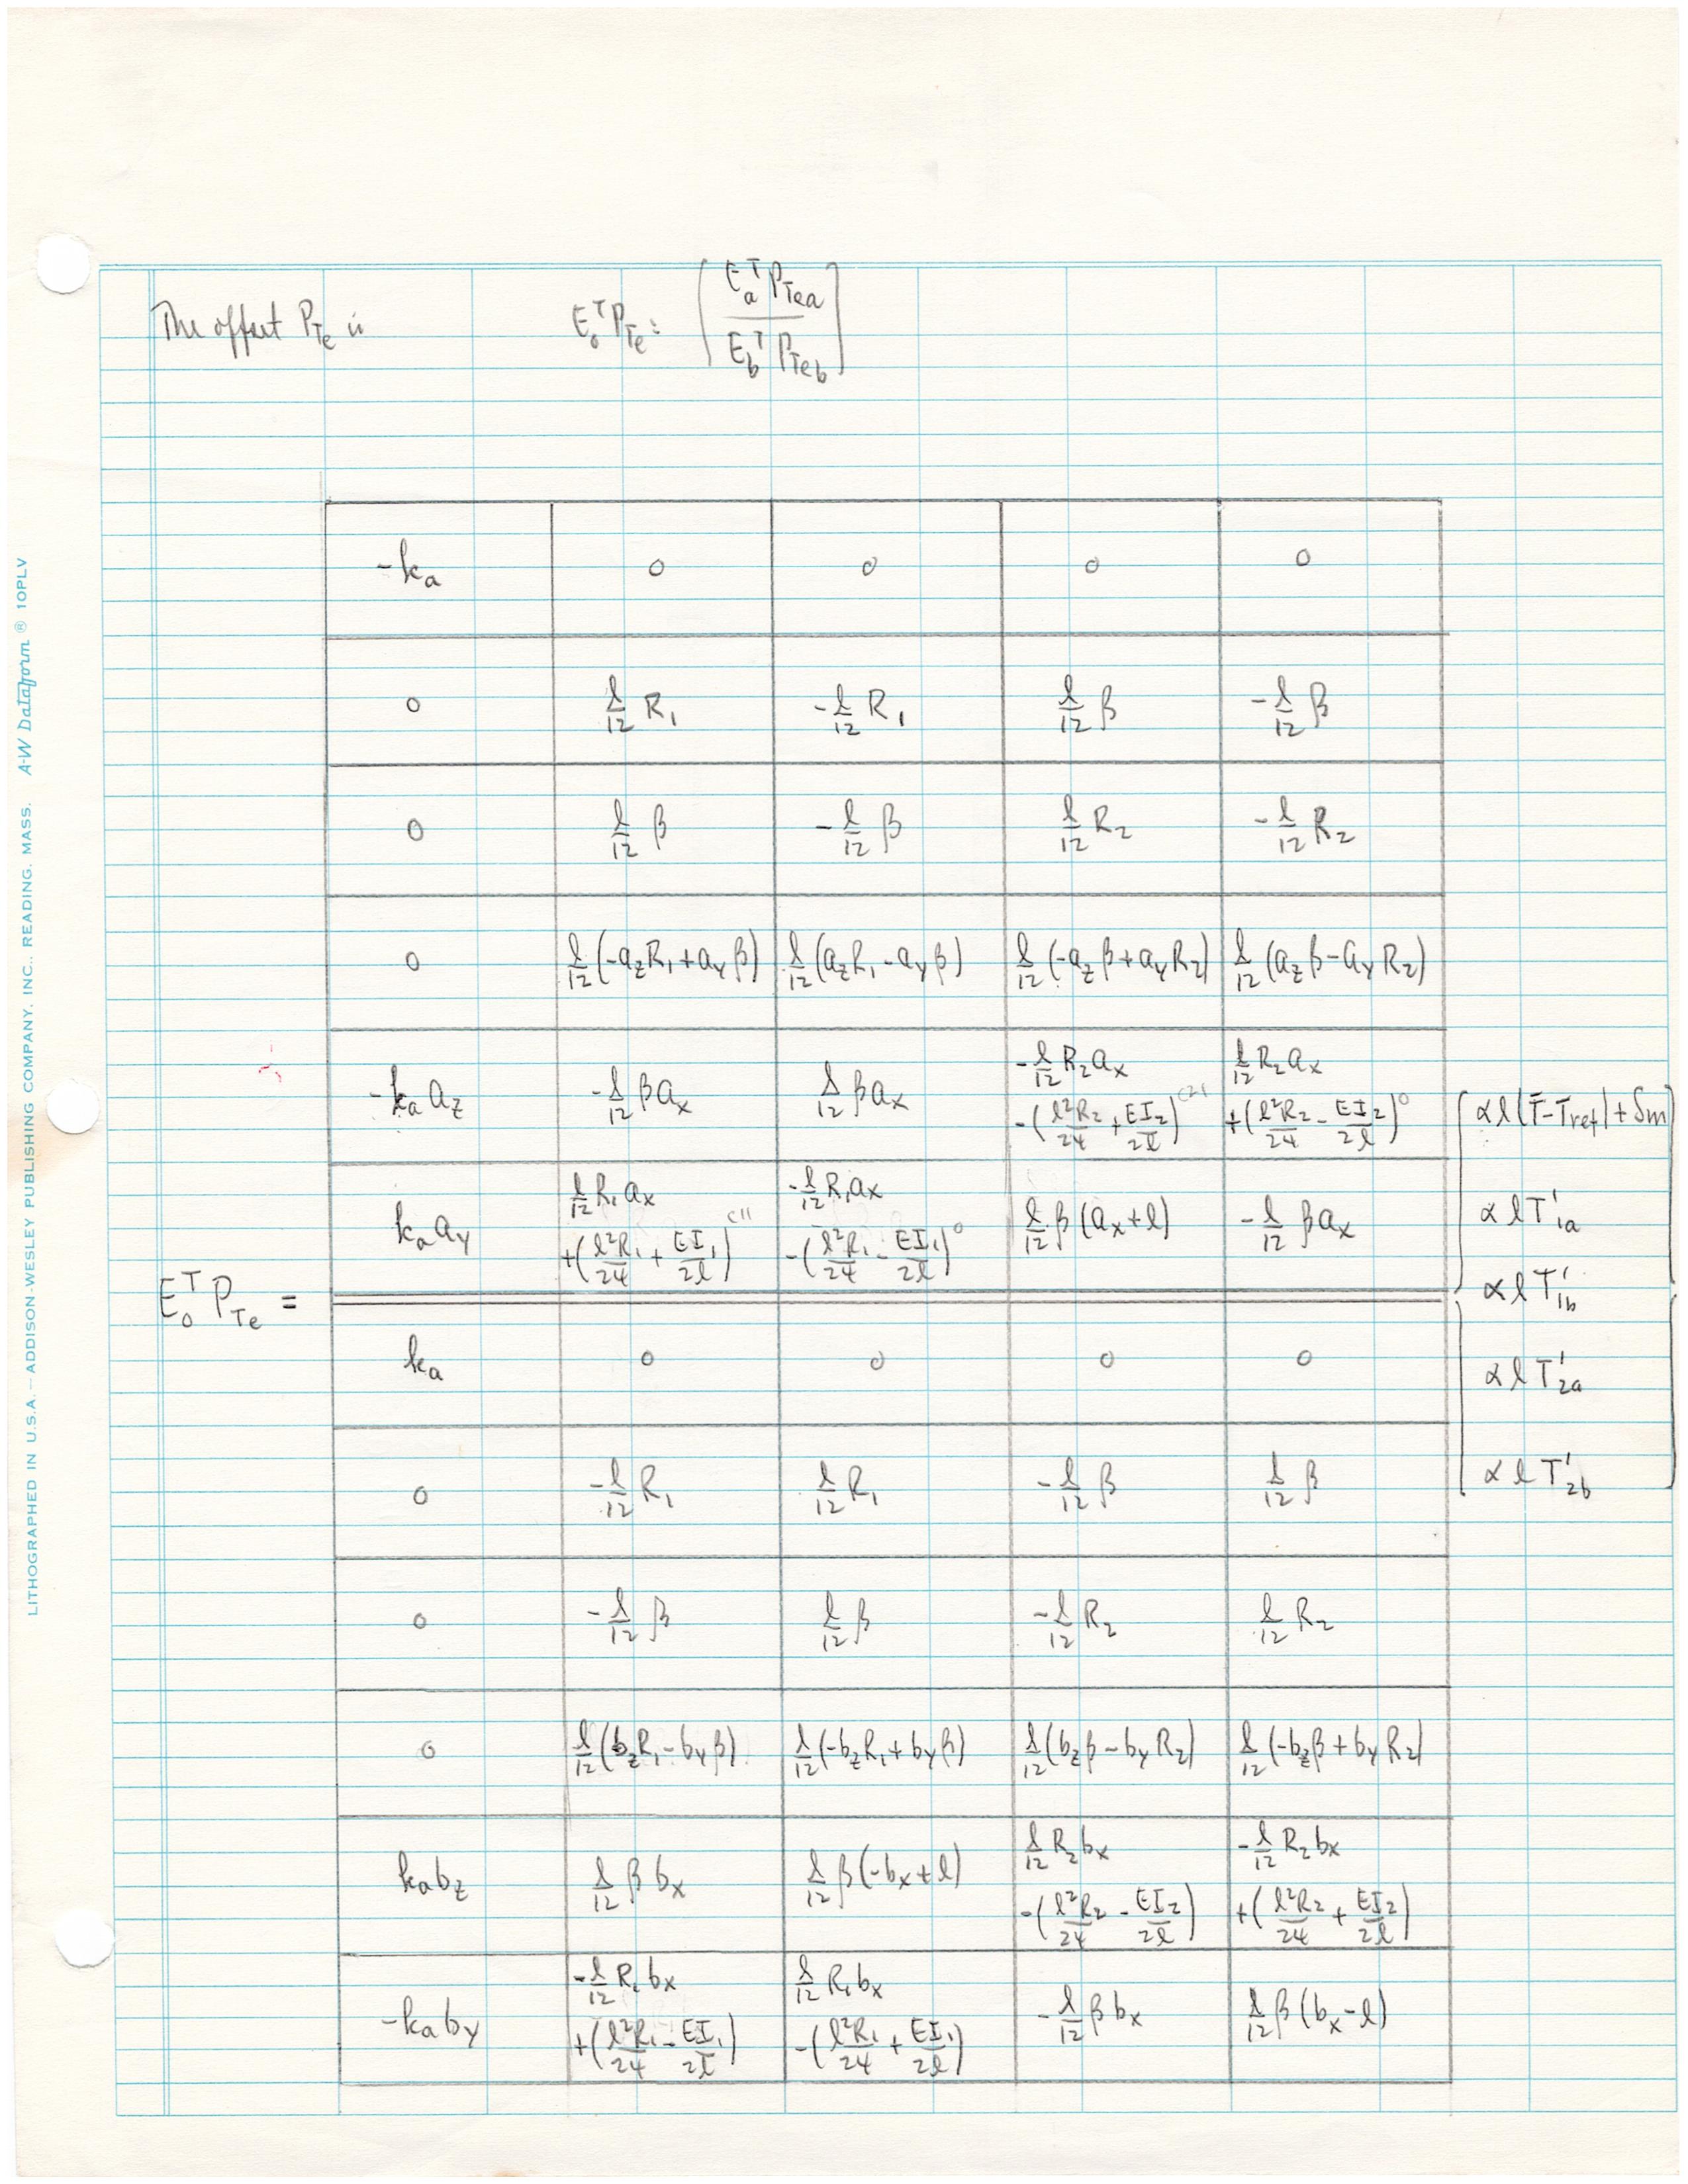 The offset P_Te is E_o^T P_Te = [ E_a^T P_Tea / E_b^T P_Teb ]
-k_a | 0 | 0 | 0 | 0
0 | l/12 R_1 | -l/12 R_1 | l/12 β | -l/12 β
0 | l/12 β | -l/12 β | l/12 R_2 | -l/12 R_2
0 | l/12 (-a_z R_1 + a_y β) | l/12 (a_z R_1 - a_y β) | l/12 (-a_z β + a_y R_2) | l/12 (a_z β - a_y R_2)
-k_a a_z | -l/12 β a_x | l/12 β a_x | -l/12 R_2 a_x -(l²R_2/24 + EI_2/2l)^C21 | l/12 R_2 a_x +(l²R_2/24 - EI_2/2l)^0
k_a a_y | l/12 R_1 a_x +(l²R_1/24 + EI_1/2l)^C11 | -l/12 R_1 a_x -(l²R_1/24 - EI_1/2l)^0 | l/12 β (a_x + l) | -l/12 β a_x
E_o^T P_Te =
k_a | 0 | 0 | 0 | 0
0 | -l/12 R_1 | l/12 R_1 | -l/12 β | l/12 β
0 | -l/12 β | l/12 β | -l/12 R_2 | l/12 R_2
0 | l/12 (b_z R_1 - b_y β) | l/12 (-b_z R_1 + b_y β) | l/12 (b_z β - b_y R_2) | l/12 (-b_z β + b_y R_2)
k_a b_z | l/12 β b_x | l/12 β (-b_x + l) | l/12 R_2 b_x -(l²R_2/24 - EI_2/2l) | -l/12 R_2 b_x +(l²R_2/24 + EI_2/2l)
-k_a b_y | -l/12 R_1 b_x +(l²R_1/24 - EI_1/2l) | l/12 R_1 b_x -(l²R_1/24 + EI_1/2l) | -l/12 β b_x | l/12 β (b_x - l)
α l (T̄ - T_ref) + δm
α l T'_1a
α l T'_1b
α l T'_2a
α l T'_2b
LITHOGRAPHED IN U.S.A. — ADDISON-WESLEY PUBLISHING COMPANY, INC., READING, MASS. A-W Dataform ® 10PLV